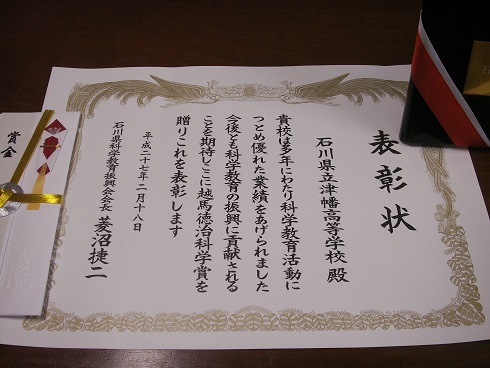 表彰状
石川県立津幡高等学校 殿
貴校は多年にわたり科学教育活動に
つとめ優れた業績をあげられました
今後とも科学教育の振興に貢献される
ことを期待しここに越馬徳治科学賞を
贈りこれを表彰します
平成二十七年二月十八日
石川県科学教育振興会会長 菱沼捷二
賞金